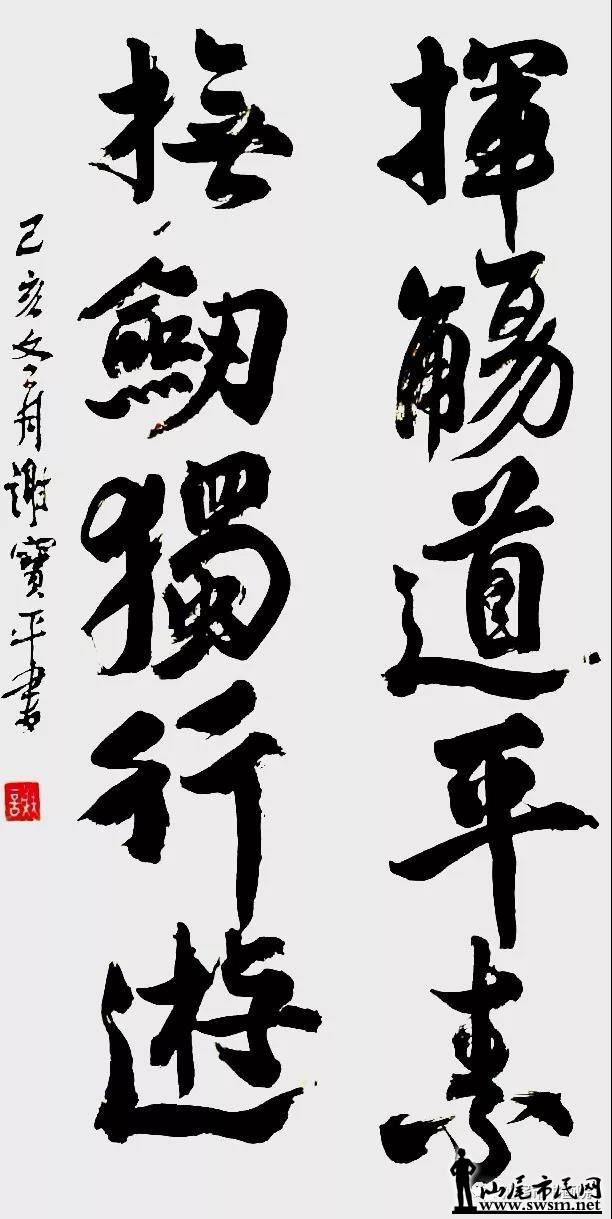 揮觴道平素
撫劒獨行遊
己亥月謝寶平書
汕尾市民网
www.swsm.net